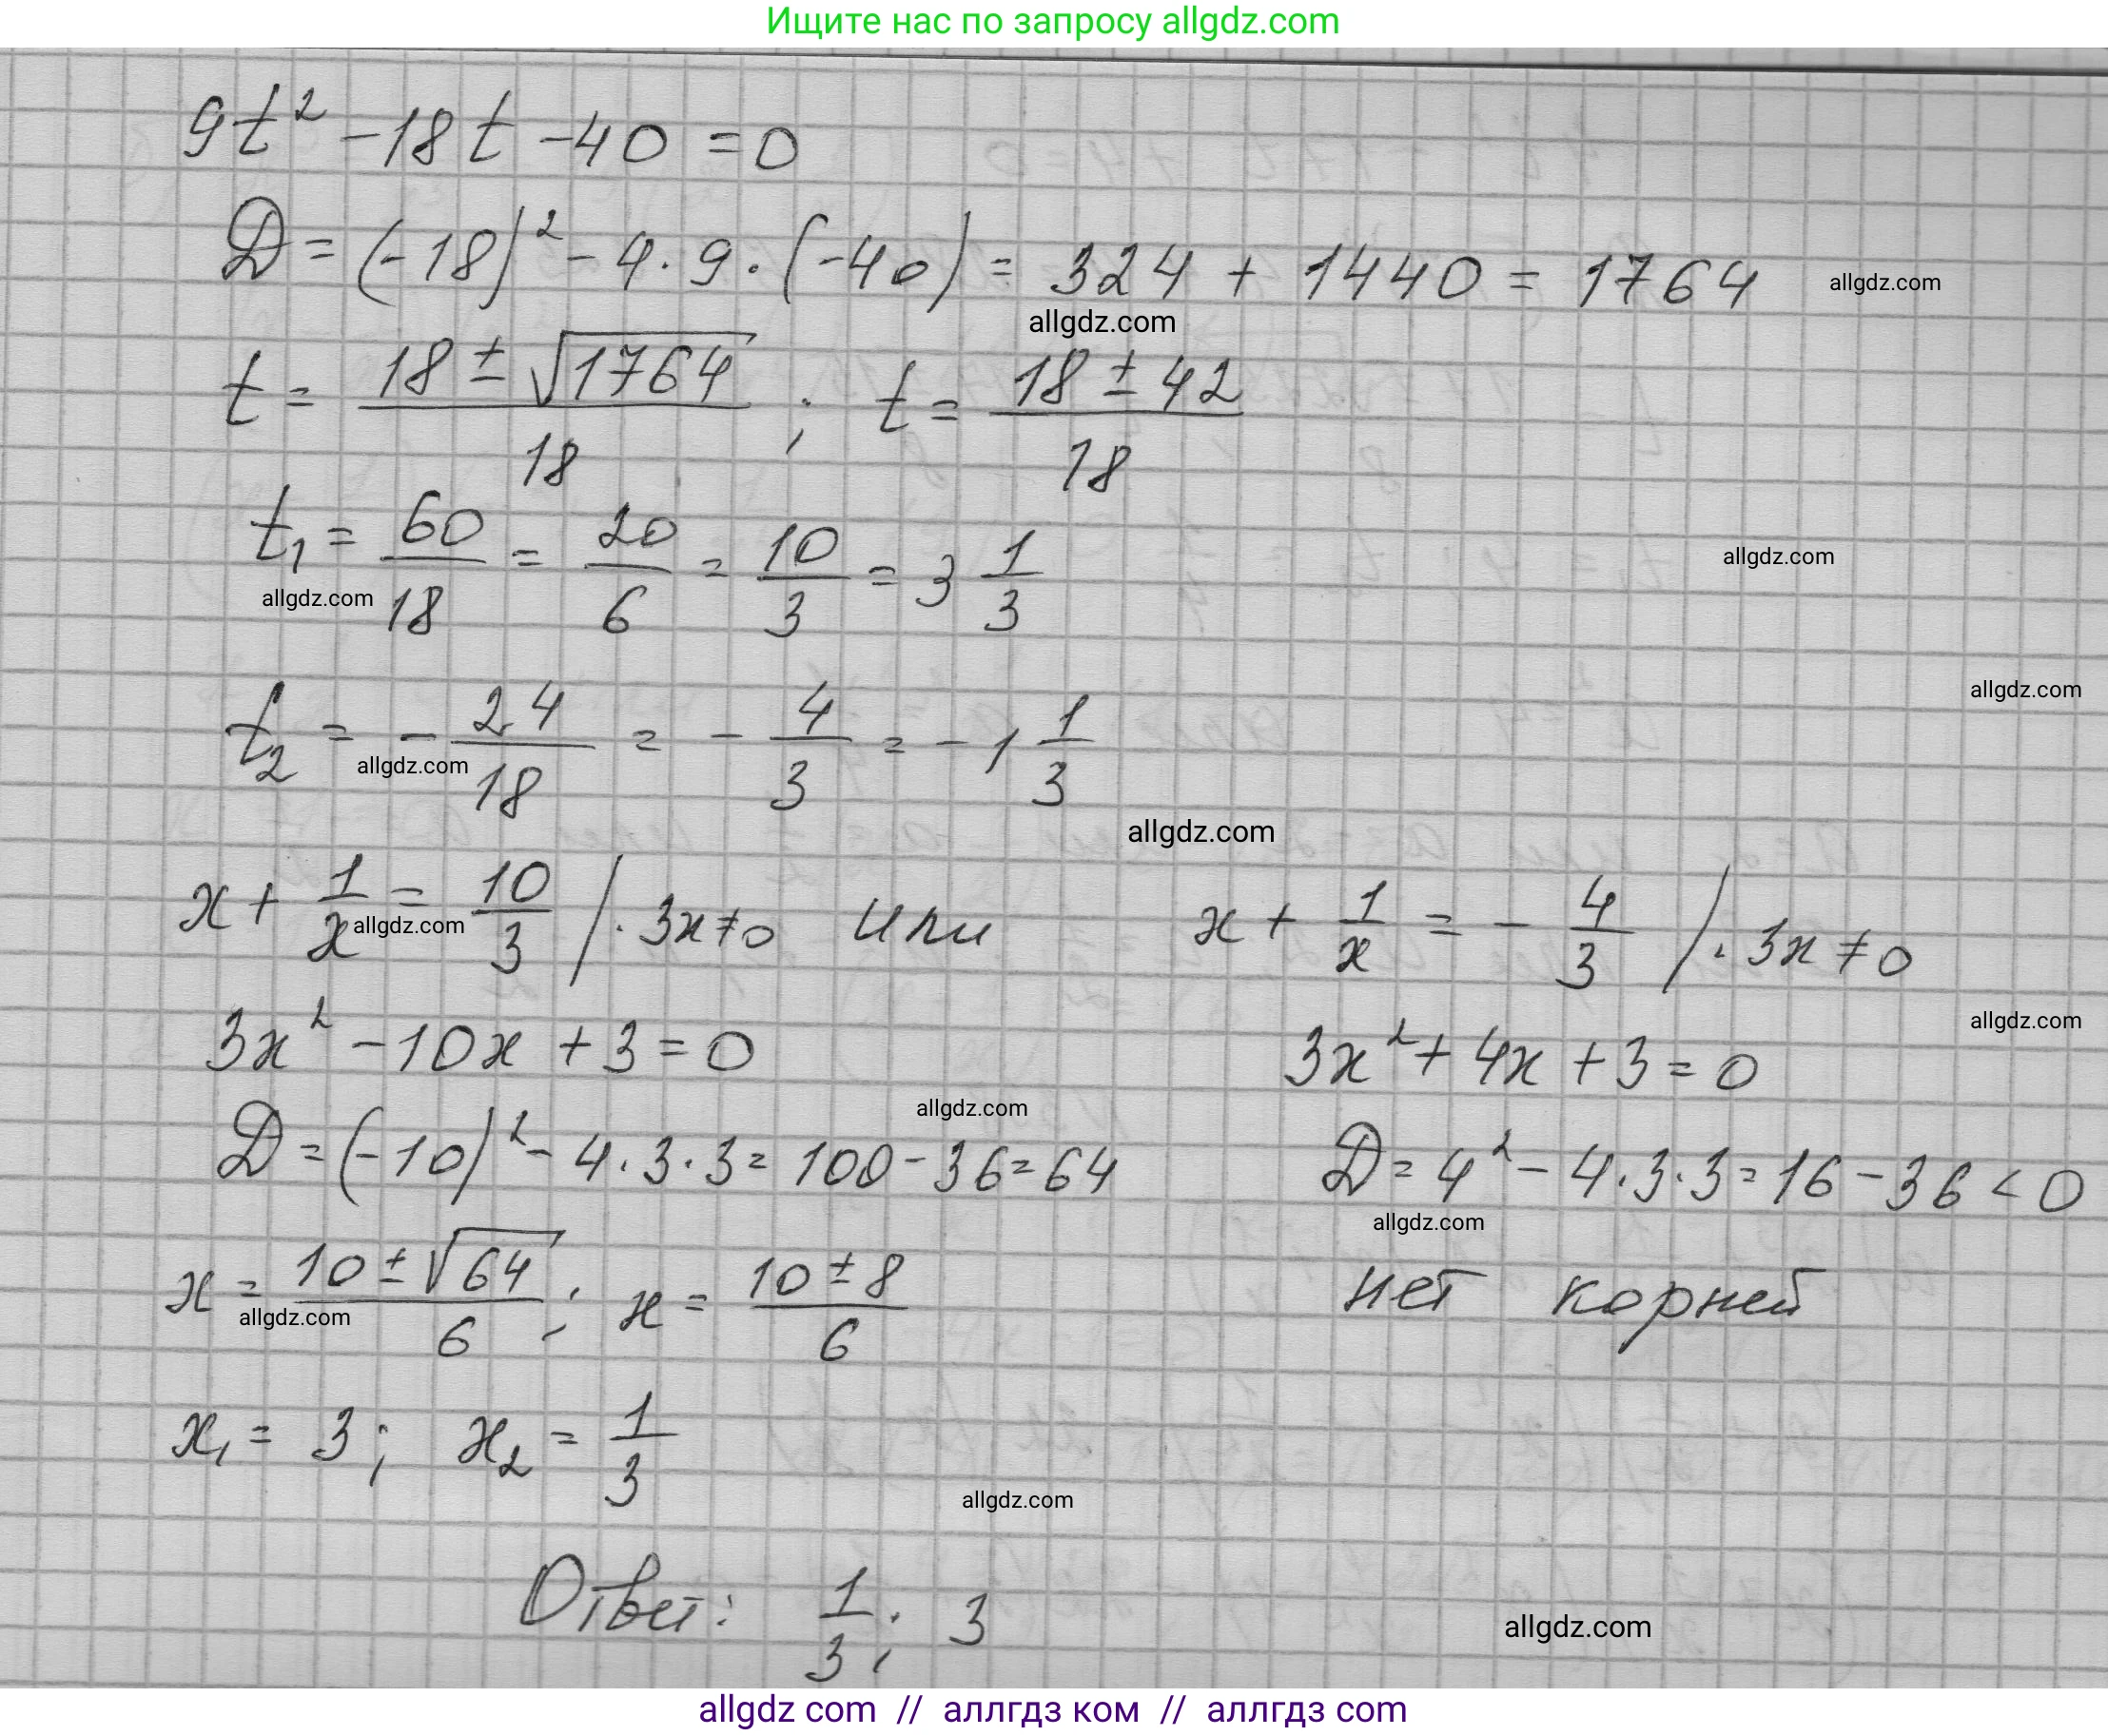 Ищите нас по запросу allgdz.com
9t² - 18t - 40 = 0
D = (-18)² - 4 · 9 · (-40) = 324 + 1440 = 1764
allgdz.com
allgdz.com
t = (18 ± √1764)/18 ; t = (18 ± 42)/18
t₁ = 60/18 = 20/6 = 10/3 = 3 1/3
allgdz.com
allgdz.com
allgdz.com
t₂ = - 24/18 = - 4/3 = - 1 1/3
allgdz.com
allgdz.com
x + 1/x = 10/3 / · 3x ≠ 0 или x + 1/x = - 4/3 / · 3x ≠ 0
allgdz.com
allgdz.com
3x² - 10x + 3 = 0 3x² + 4x + 3 = 0
allgdz.com
D = (-10)² - 4 · 3 · 3 = 100 - 36 = 64 D = 4² - 4 · 3 · 3 = 16 - 36 < 0
allgdz.com
x = (10 ± √64)/6 ; x = (10 ± 8)/6 нет корней
allgdz.com
x₁ = 3; x₂ = 1/3
allgdz.com
Ответ: 1/3; 3
allgdz.com
allgdz com // аллгдз ком // аллгдз com